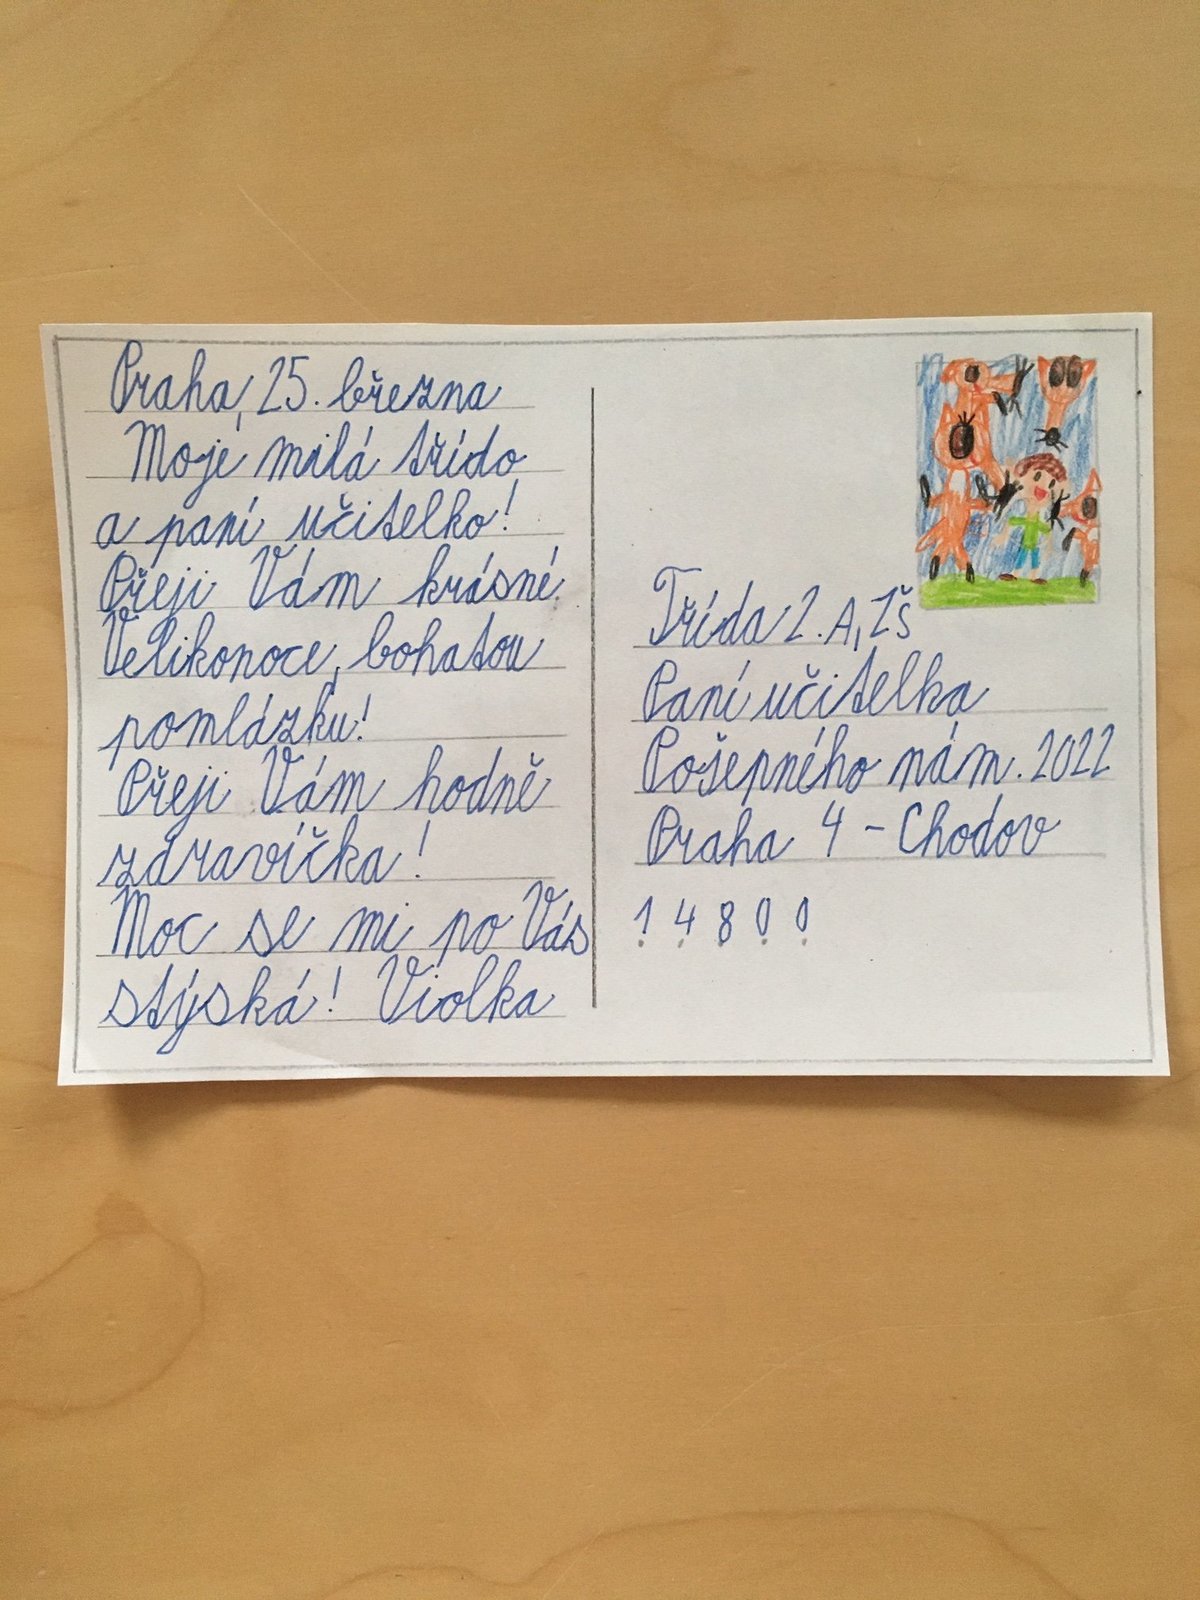 Praha, 25. března
Moje milá třído
a paní učitelko!
Přeji Vám krásné
Velikonoce, bohatou
pomlázku!
Přeji Vám hodně
zdravíčka!
Moc se mi po Vás
stýská! Violka
Třída 2.A, ZŠ
Paní učitelka
Pošepného nám. 2022
Praha 4 - Chodov
14800